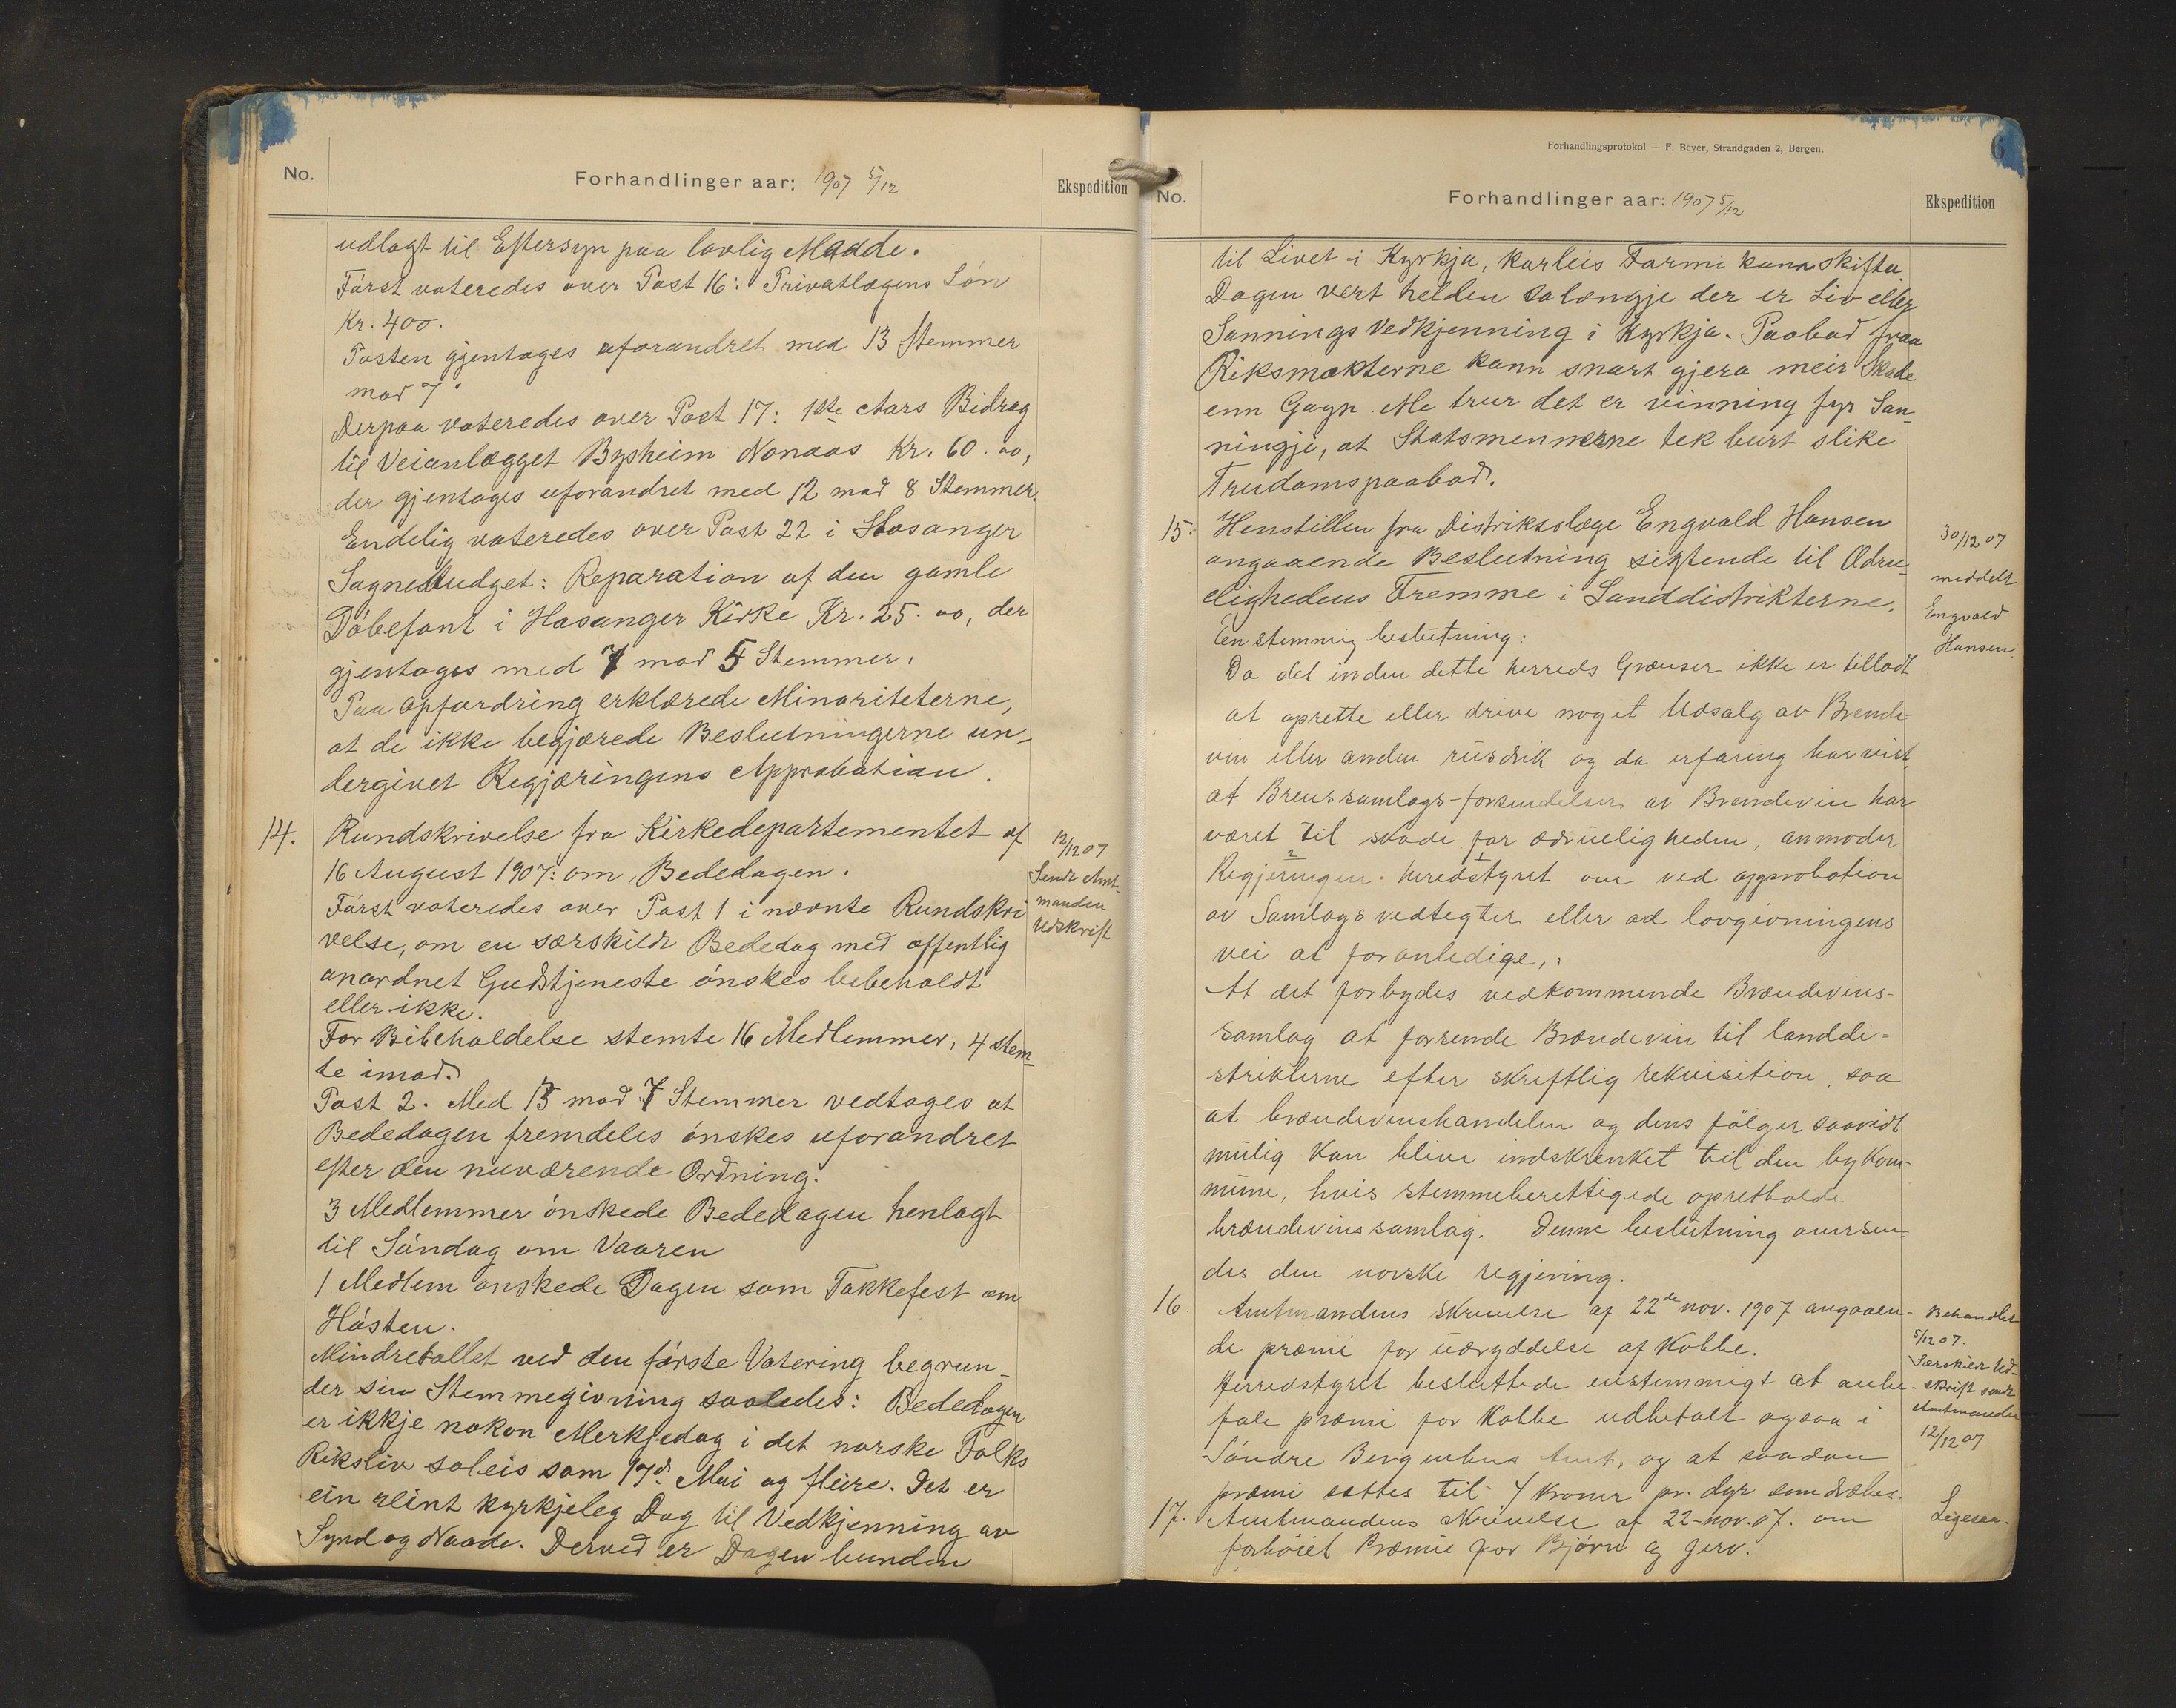 No.
Forhandlinger aar: 1907 5/12
Ekspedition
udlagt til Eftersyn paa lovlig Maade.
Först voteredes over Post 16: Privatlægens Lön
Kr. 400.
Posten gjentages uforandret med 13 Stemmer
mod 7.
Derpaa voteredes over Post 17: 1ste Aars Bidrag
til Veianlægget Bysheim Nonaas Kr. 60.00,
der gjentages uforandret med 12 mod 8 Stemmer.
Endelig voteredes over Post 22 i Hosanger
Sognebudget: Reparation af den gamle
Döbefont i Hosanger Kirke Kr. 25.00, der
gjentages med 7 mod 5 Stemmer.
Paa Opfordring erklærede Minoriteterne,
at de ikke begjærede Beslutningerne un-
dergivet Regjæringens Approbation.
14. Rundskrivelse fra Kirkedepartementet af
16 August 1907: om Bededagen.
Först voteredes over Post 1 i nævnte Rundskri
velse, om en særskildt Bededag med offentlig
anordnet Gudstjeneste önskes bebeholdt
eller ikke.
For Bibeholdelse stemte 16 Medlemmer, 4 stem-
te imod.
Post 2. Med 13 mod 7 Stemmer vedtages at
Bededagen fremdeles önskes uforandret
efter den nuværende Ordning.
3 Medlemmer önskede Bededagen henlagt
til Söndag om Vaaren
1 Medlem önskede Dagen som Takkefest om
Hösten.
Mindretallet ved den förste Votering begrun-
der sin Stemmegivning saaledes: Bededagen
er ikkje nokon Merkjedag i det norske Folks
Riksliv soleis som 17d. Mai og fleire. Det er
ein reint kyrkjeleg Dag til Vedkjenning av
Synd og Naade. Derved er Dagen bunden
12/12 07
Sendt Amt-
manden
Udskrift
Forhandlingsprotokol — F. Beyer, Strandgaden 2, Bergen.
6
No.
Forhandlinger aar: 1907 5/12
Ekspedition
til Livet i Kyrkja, korleis Formi kann skifta
Dagen vert helden solængje der er Liv eller
Sannings Vedkjenning i Kyrkja. Paabod fraa
Riksmakterne kann snart gjera meir Skade
enn Gagn. Me trur det er vinning fyr San-
ningji, at Statsmennerne tek burt slike
Trudomspaabod.
15. Henstillen fra Distriktslæge Engvald Hansen
angaaende Beslutning sigtende til Ædru-
elighedens Fremme i Landdistrikterne.
Enstemmig beslutning:
Da det inden dette herreds Grænser ikke er tilladt
at oprette eller drive noget Udsalg av Brende-
vin eller anden rusdrik og da erfaring har vist,
at Brenssamlags-forsendelser av Brendevin har
været til skade for ædrueligheden, anmoder
2 1
Regjeringen herredstyret om ved approbation
av Samlagsvedtegter eller ad lovgivningens
vei at foranledige,:
At det forbydes vedkommende Brændevins-
samlag at forsende Brændevin til landdi-
strikterne efter skriftlig rekvisition, saa
at brændevinshandelen og dens fölger saavidt
mulig kan blive indskrenket til den bykom-
mune, hvis stemmeberettigede opretholde
brændevinssamlag. Denne beslutning oversen-
des den norske regjering.
16. Amtmandens skrivelse af 22de nov. 1907 angaaen-
de præmi for udryddelse af Kobbe.
Herredstyret besluttede enstemmigt at anbe-
fale præmi for Kobbe udbetalt ogsaa i
Söndre Bergenhus Amt, og at saadan
præmi sættes til 4 kroner pr. dyr som dræbes.
17. Amtmandens skrivelse af 22-nov. 07. om
forhöiet Præmie for Bjørn og Jerv.
30/12 07
meddelt
Engvald
Hansen.
Behandlet
5/12 07.
Særskildt Ud-
skrift sendt
Amtmanden
12/12 07
Ligesaa.